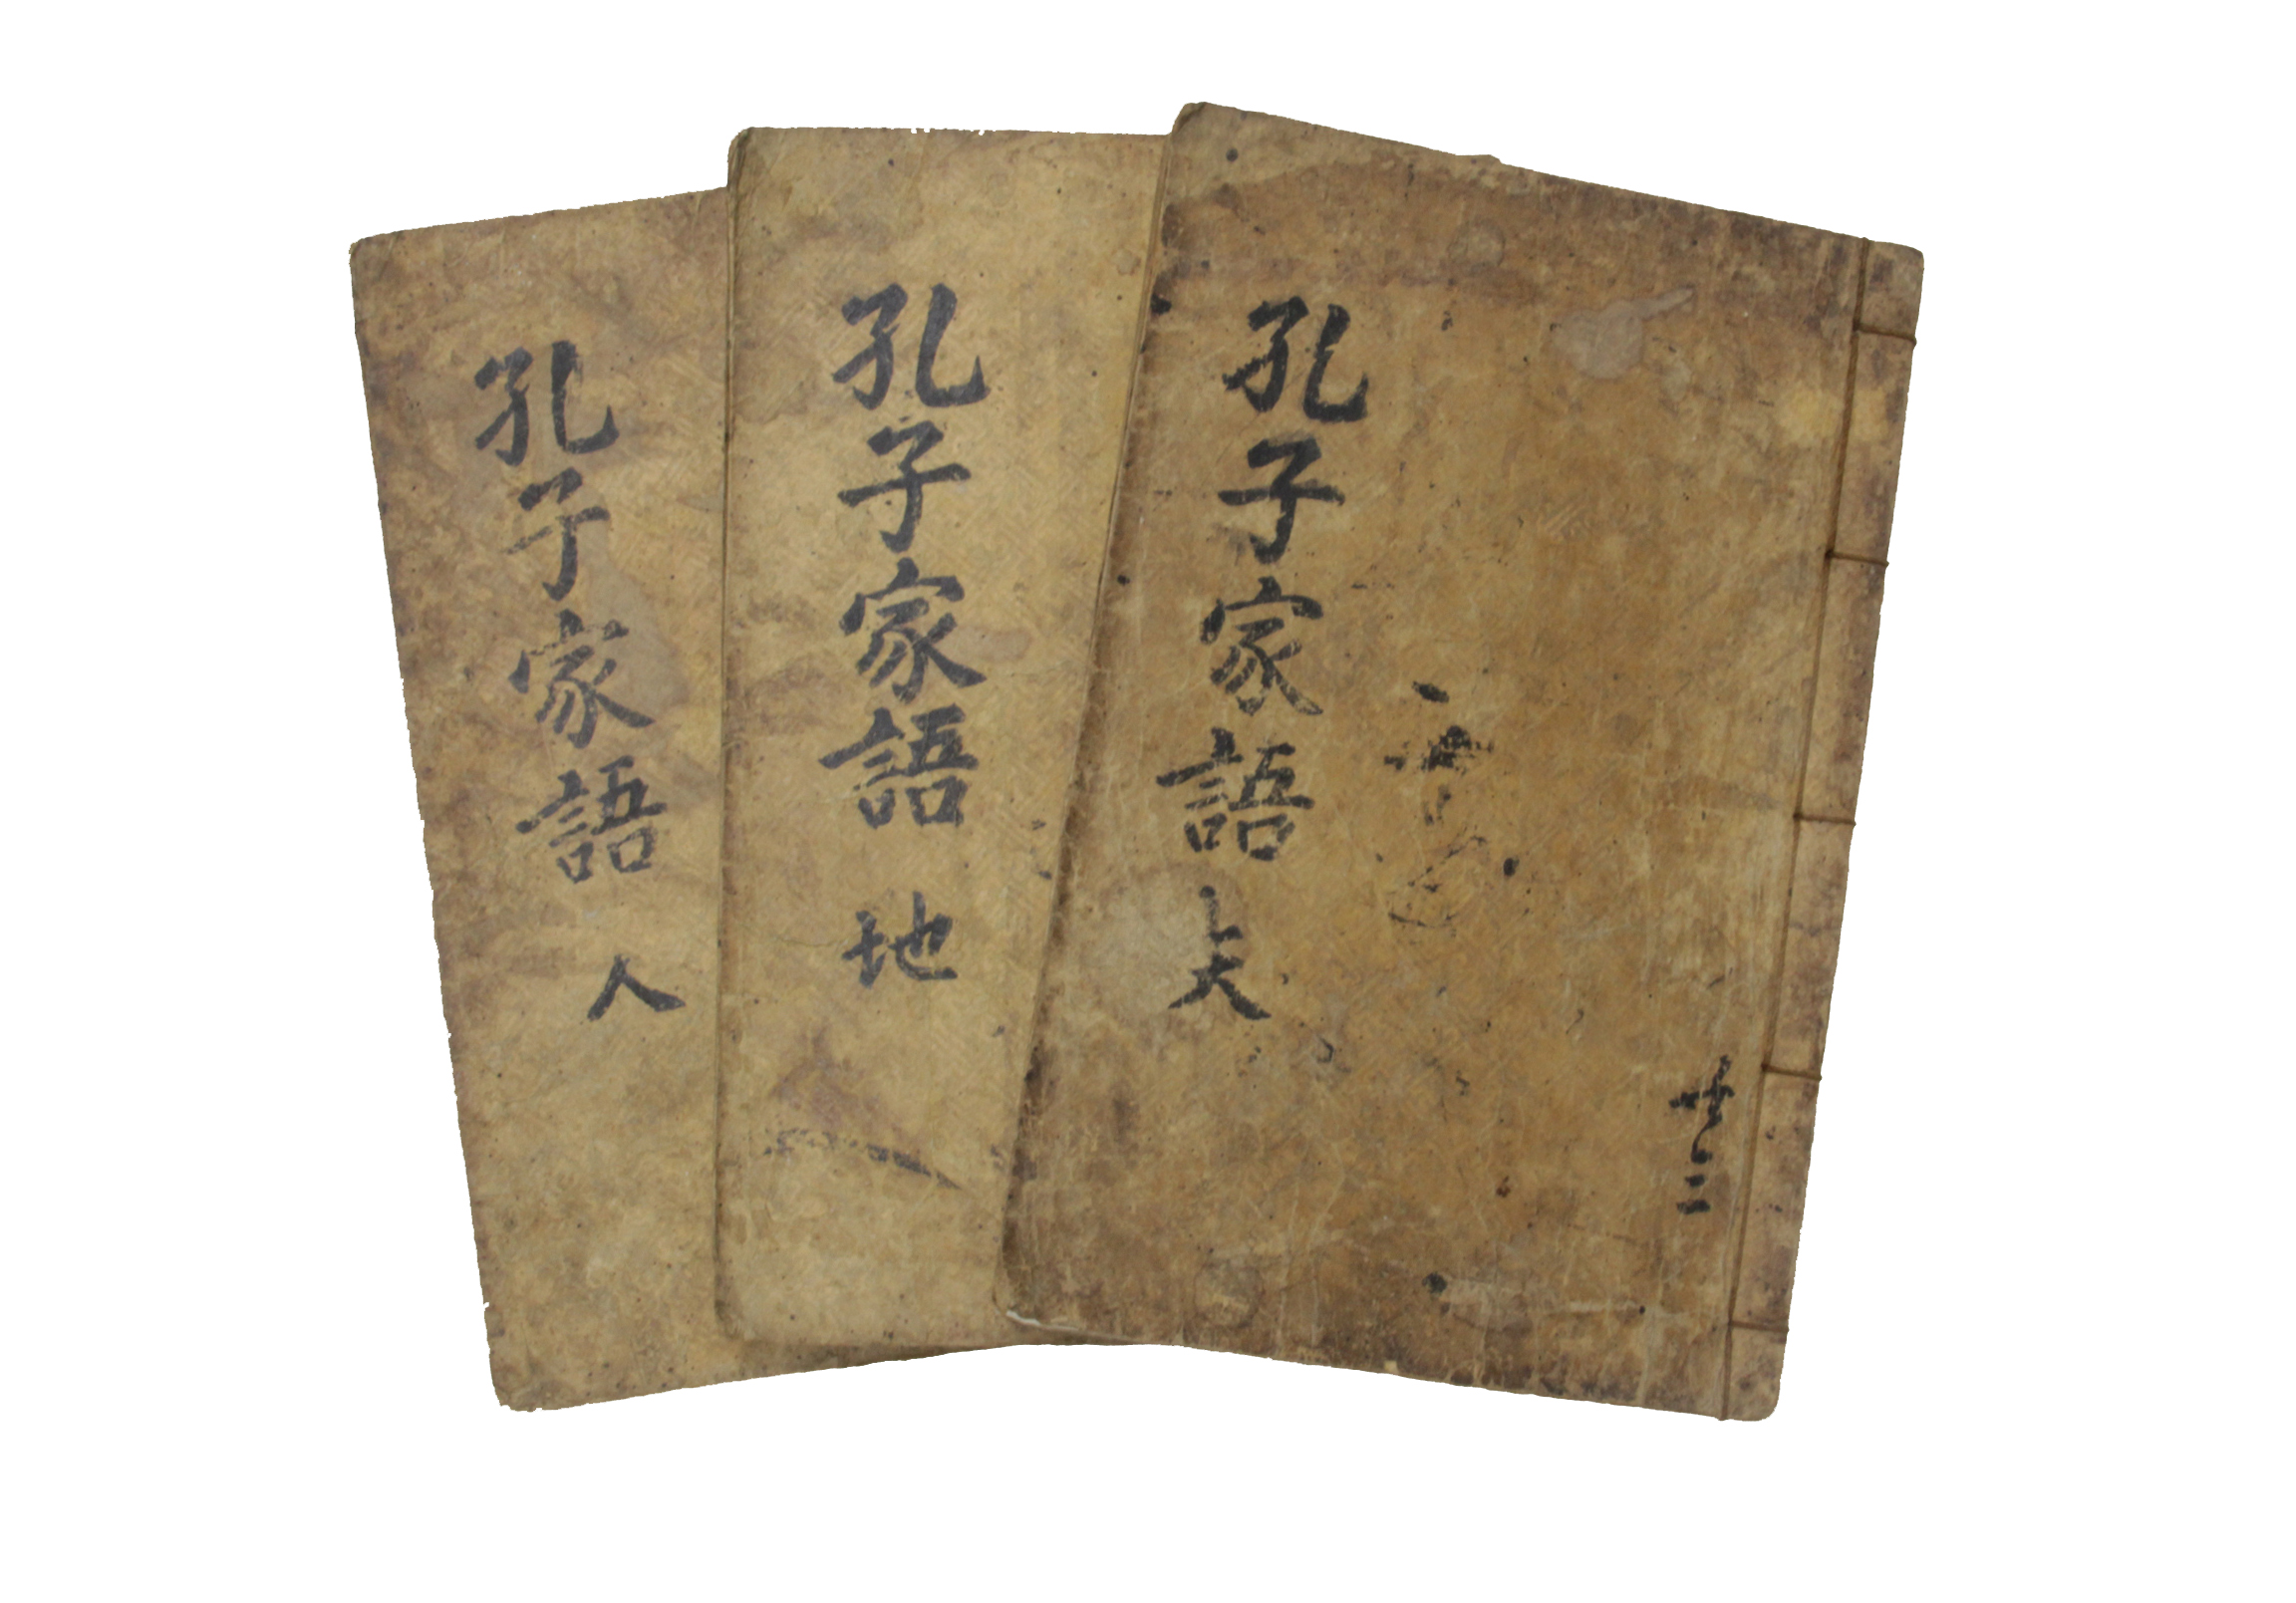 共三
孔子家語 天
孔子家語 地
孔子家語 人